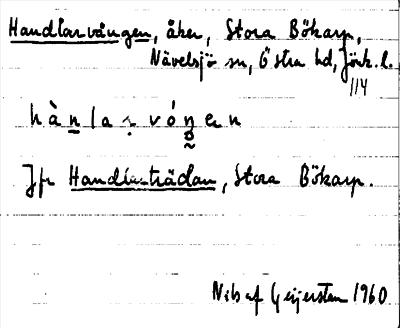 Handlarvången, åker, Stora Bökarp,
Nävelsjö sn, Östra hd, Jönk. l.
114
hàn̲laṛvóŋen
Jfr Handlarträdan, Stora Bökarp.
Nils af Geijerstam 1960